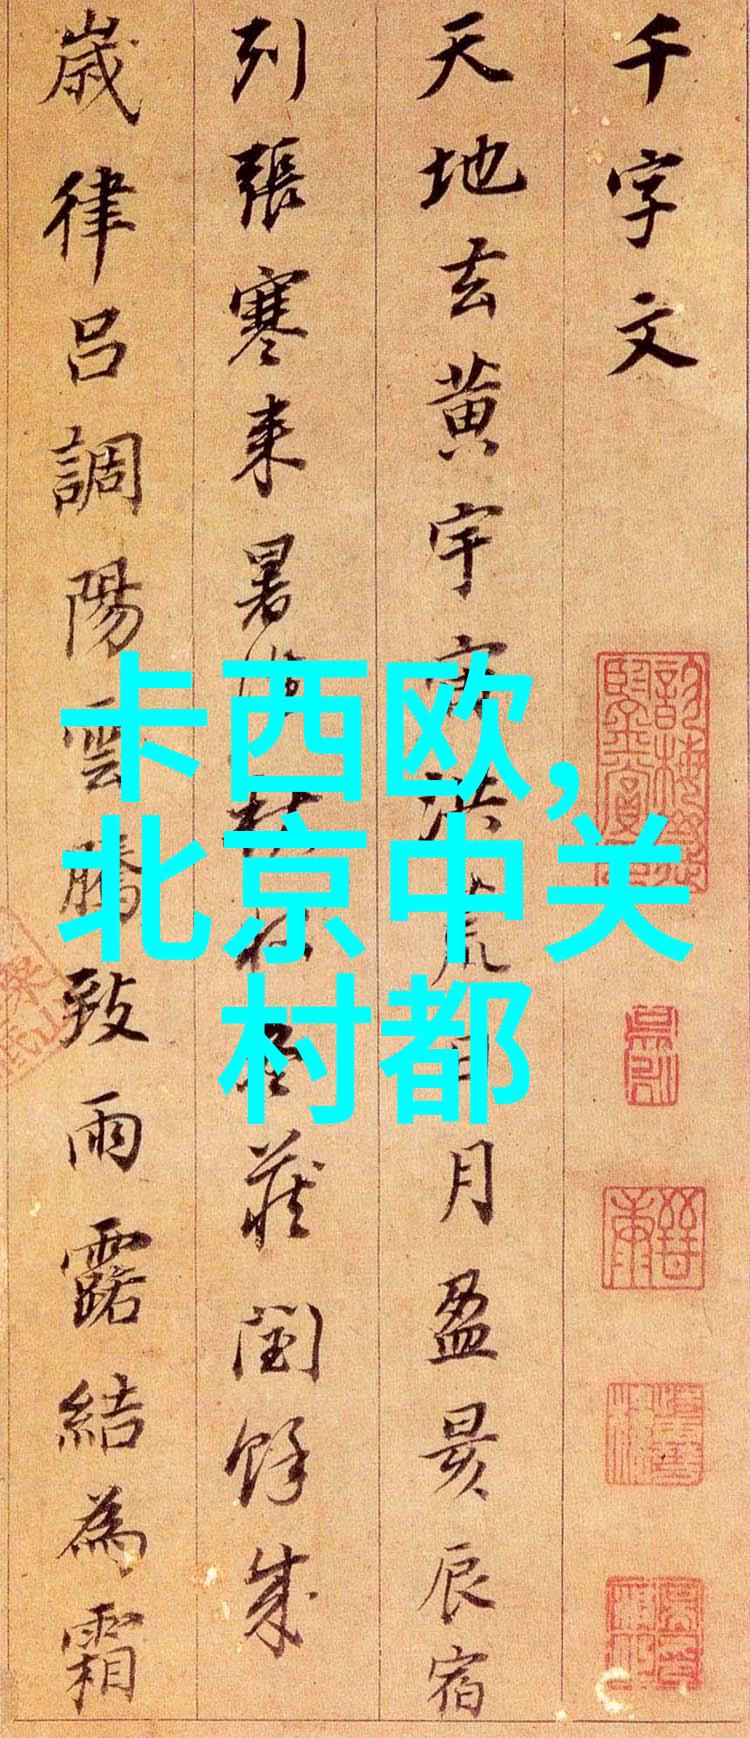 千字文
天地玄黄宇宙洪荒日月盈昃辰宿
列張寒来暑往秋收冬蔵閏餘成
歳律吕調陽雲騰致雨露結為霜
卡西欧,
北京中关
村都